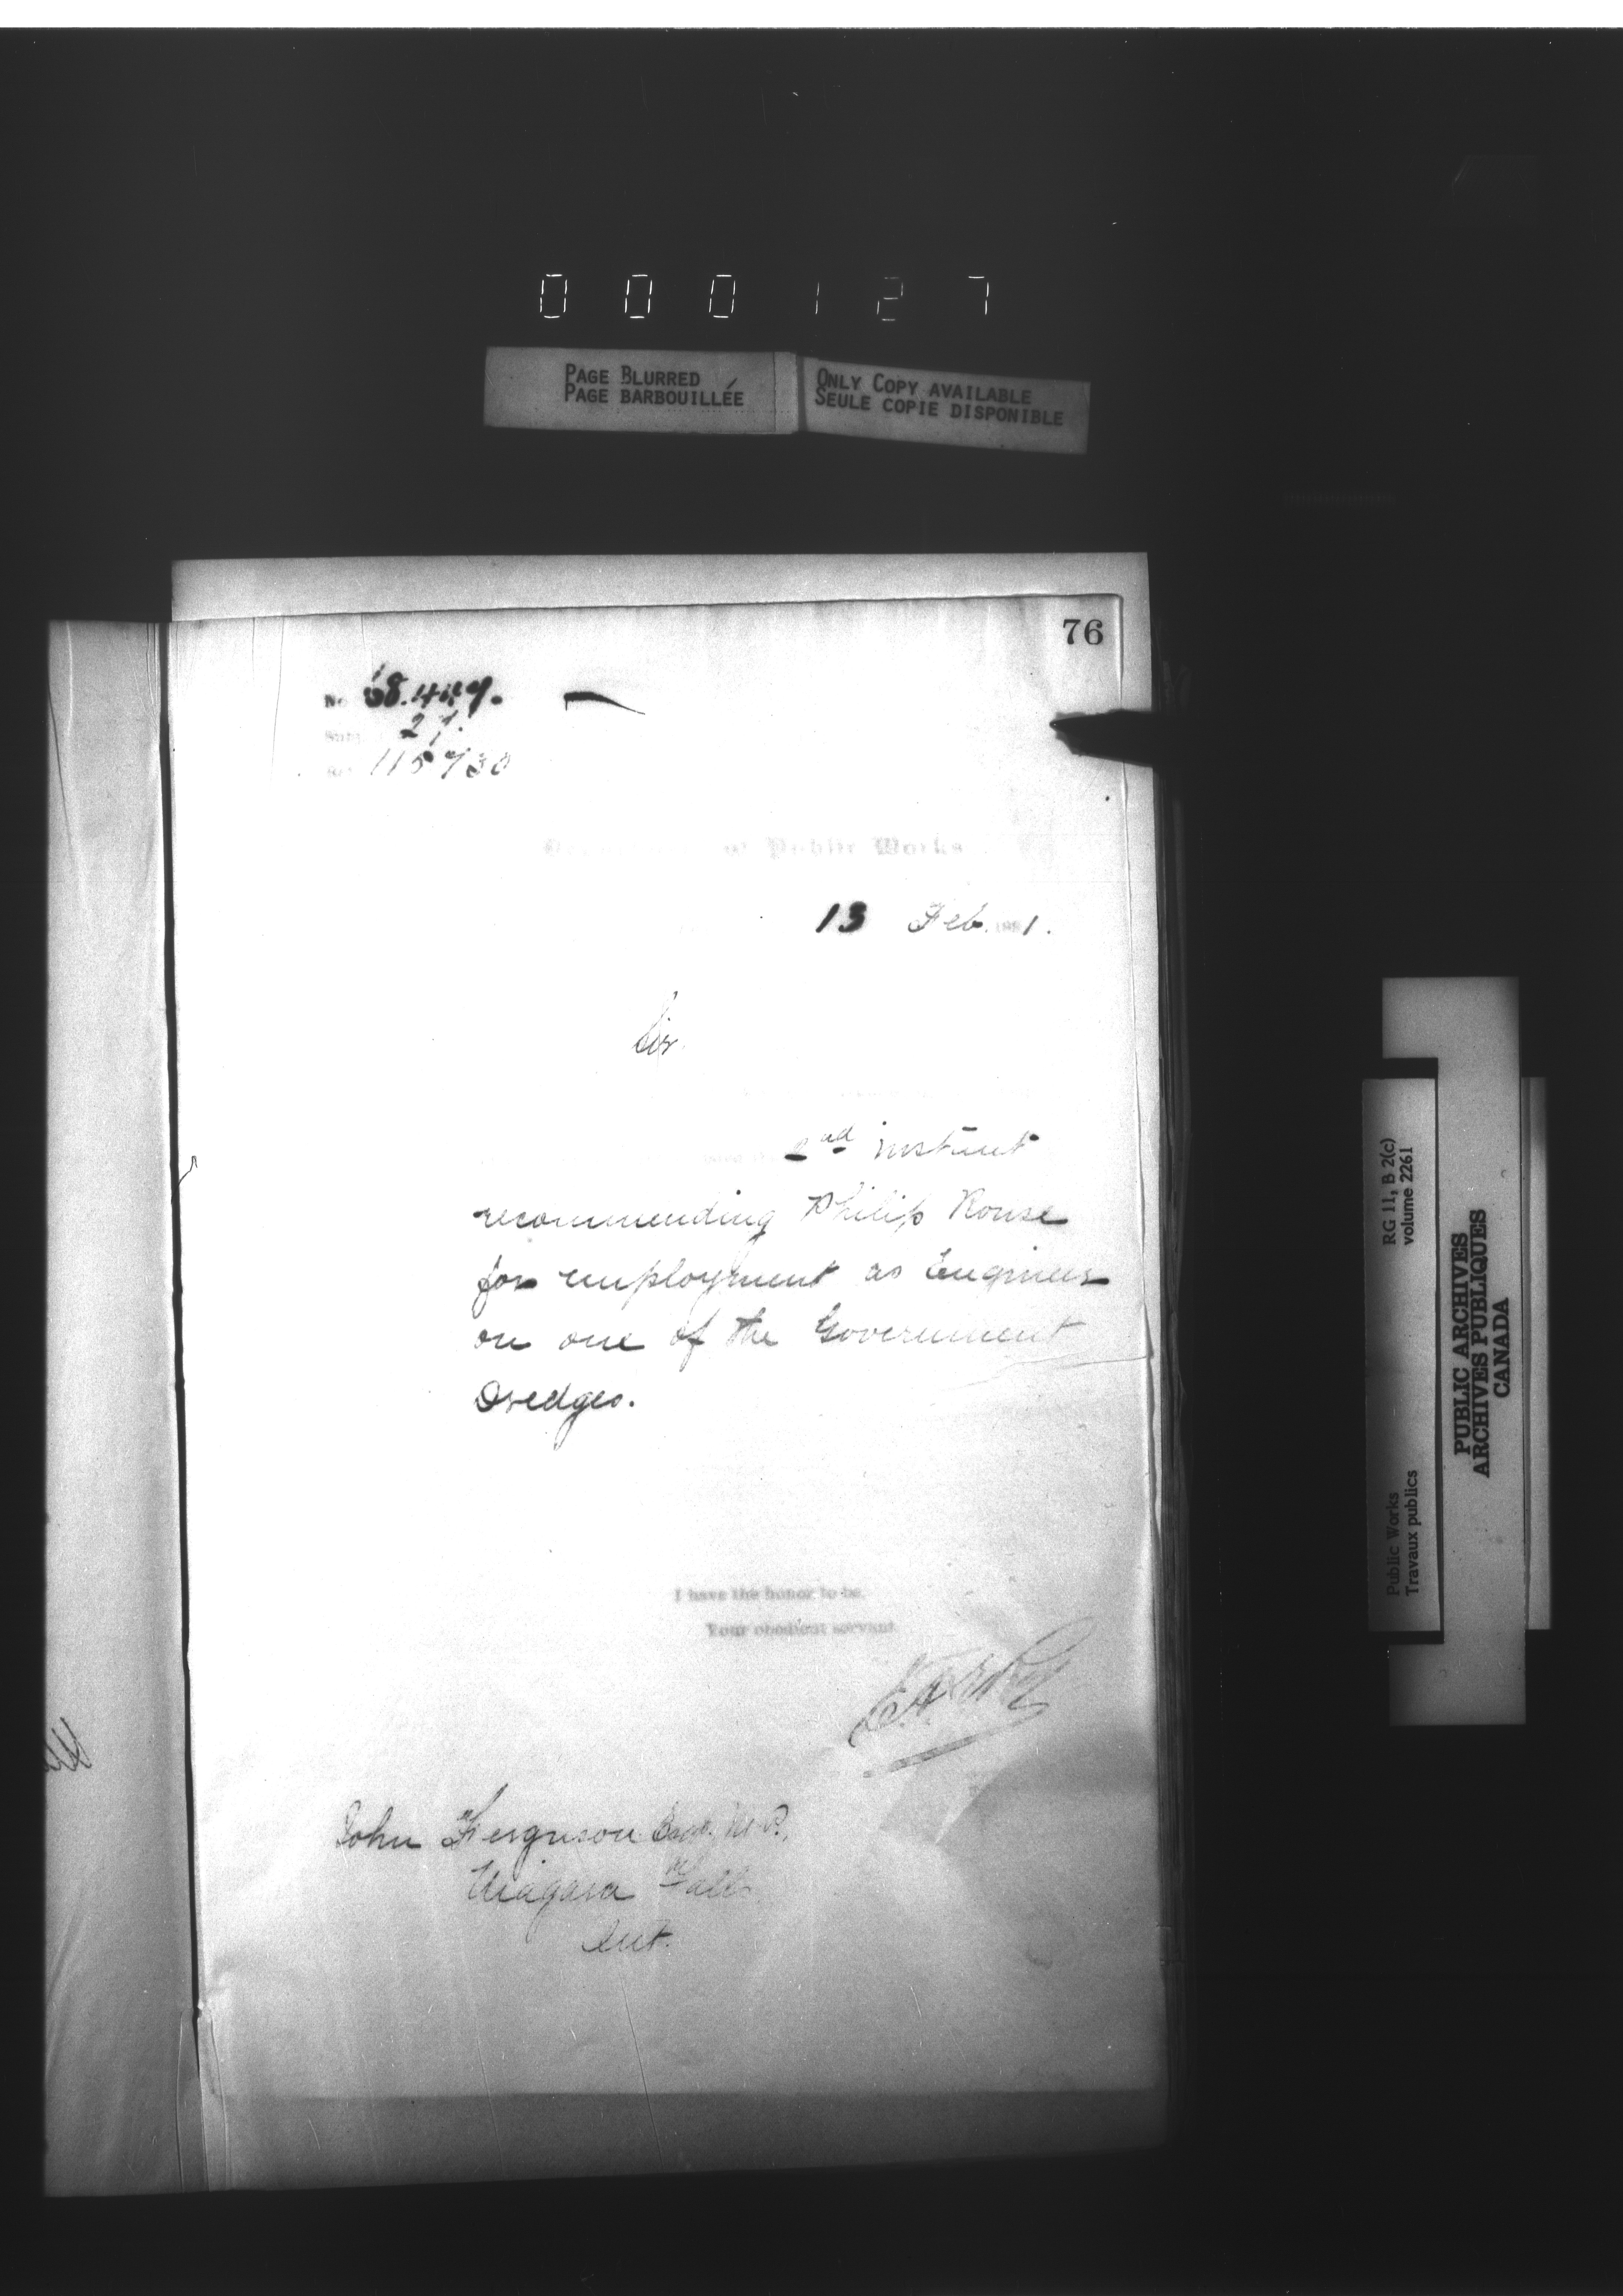 000127
PAGE BLURRED
PAGE BARBOUILLÉE
ONLY COPY AVAILABLE
SEULE COPIE DISPONIBLE
76
No
21.
115730
Public Works
13 Feb. 1881.
Sir
2nd instant
recommending Philip Rouse
for employment as Engineer
on one of the Government
Dredges.
I have the honor to be,
Your obedient servant
John Ferguson Esqr. M.P.,
Niagara Falls
Ont.
RG 11, B 2(c)
volume 2261
Public Works
Travaux publics
PUBLIC ARCHIVES
ARCHIVES PUBLIQUES
CANADA